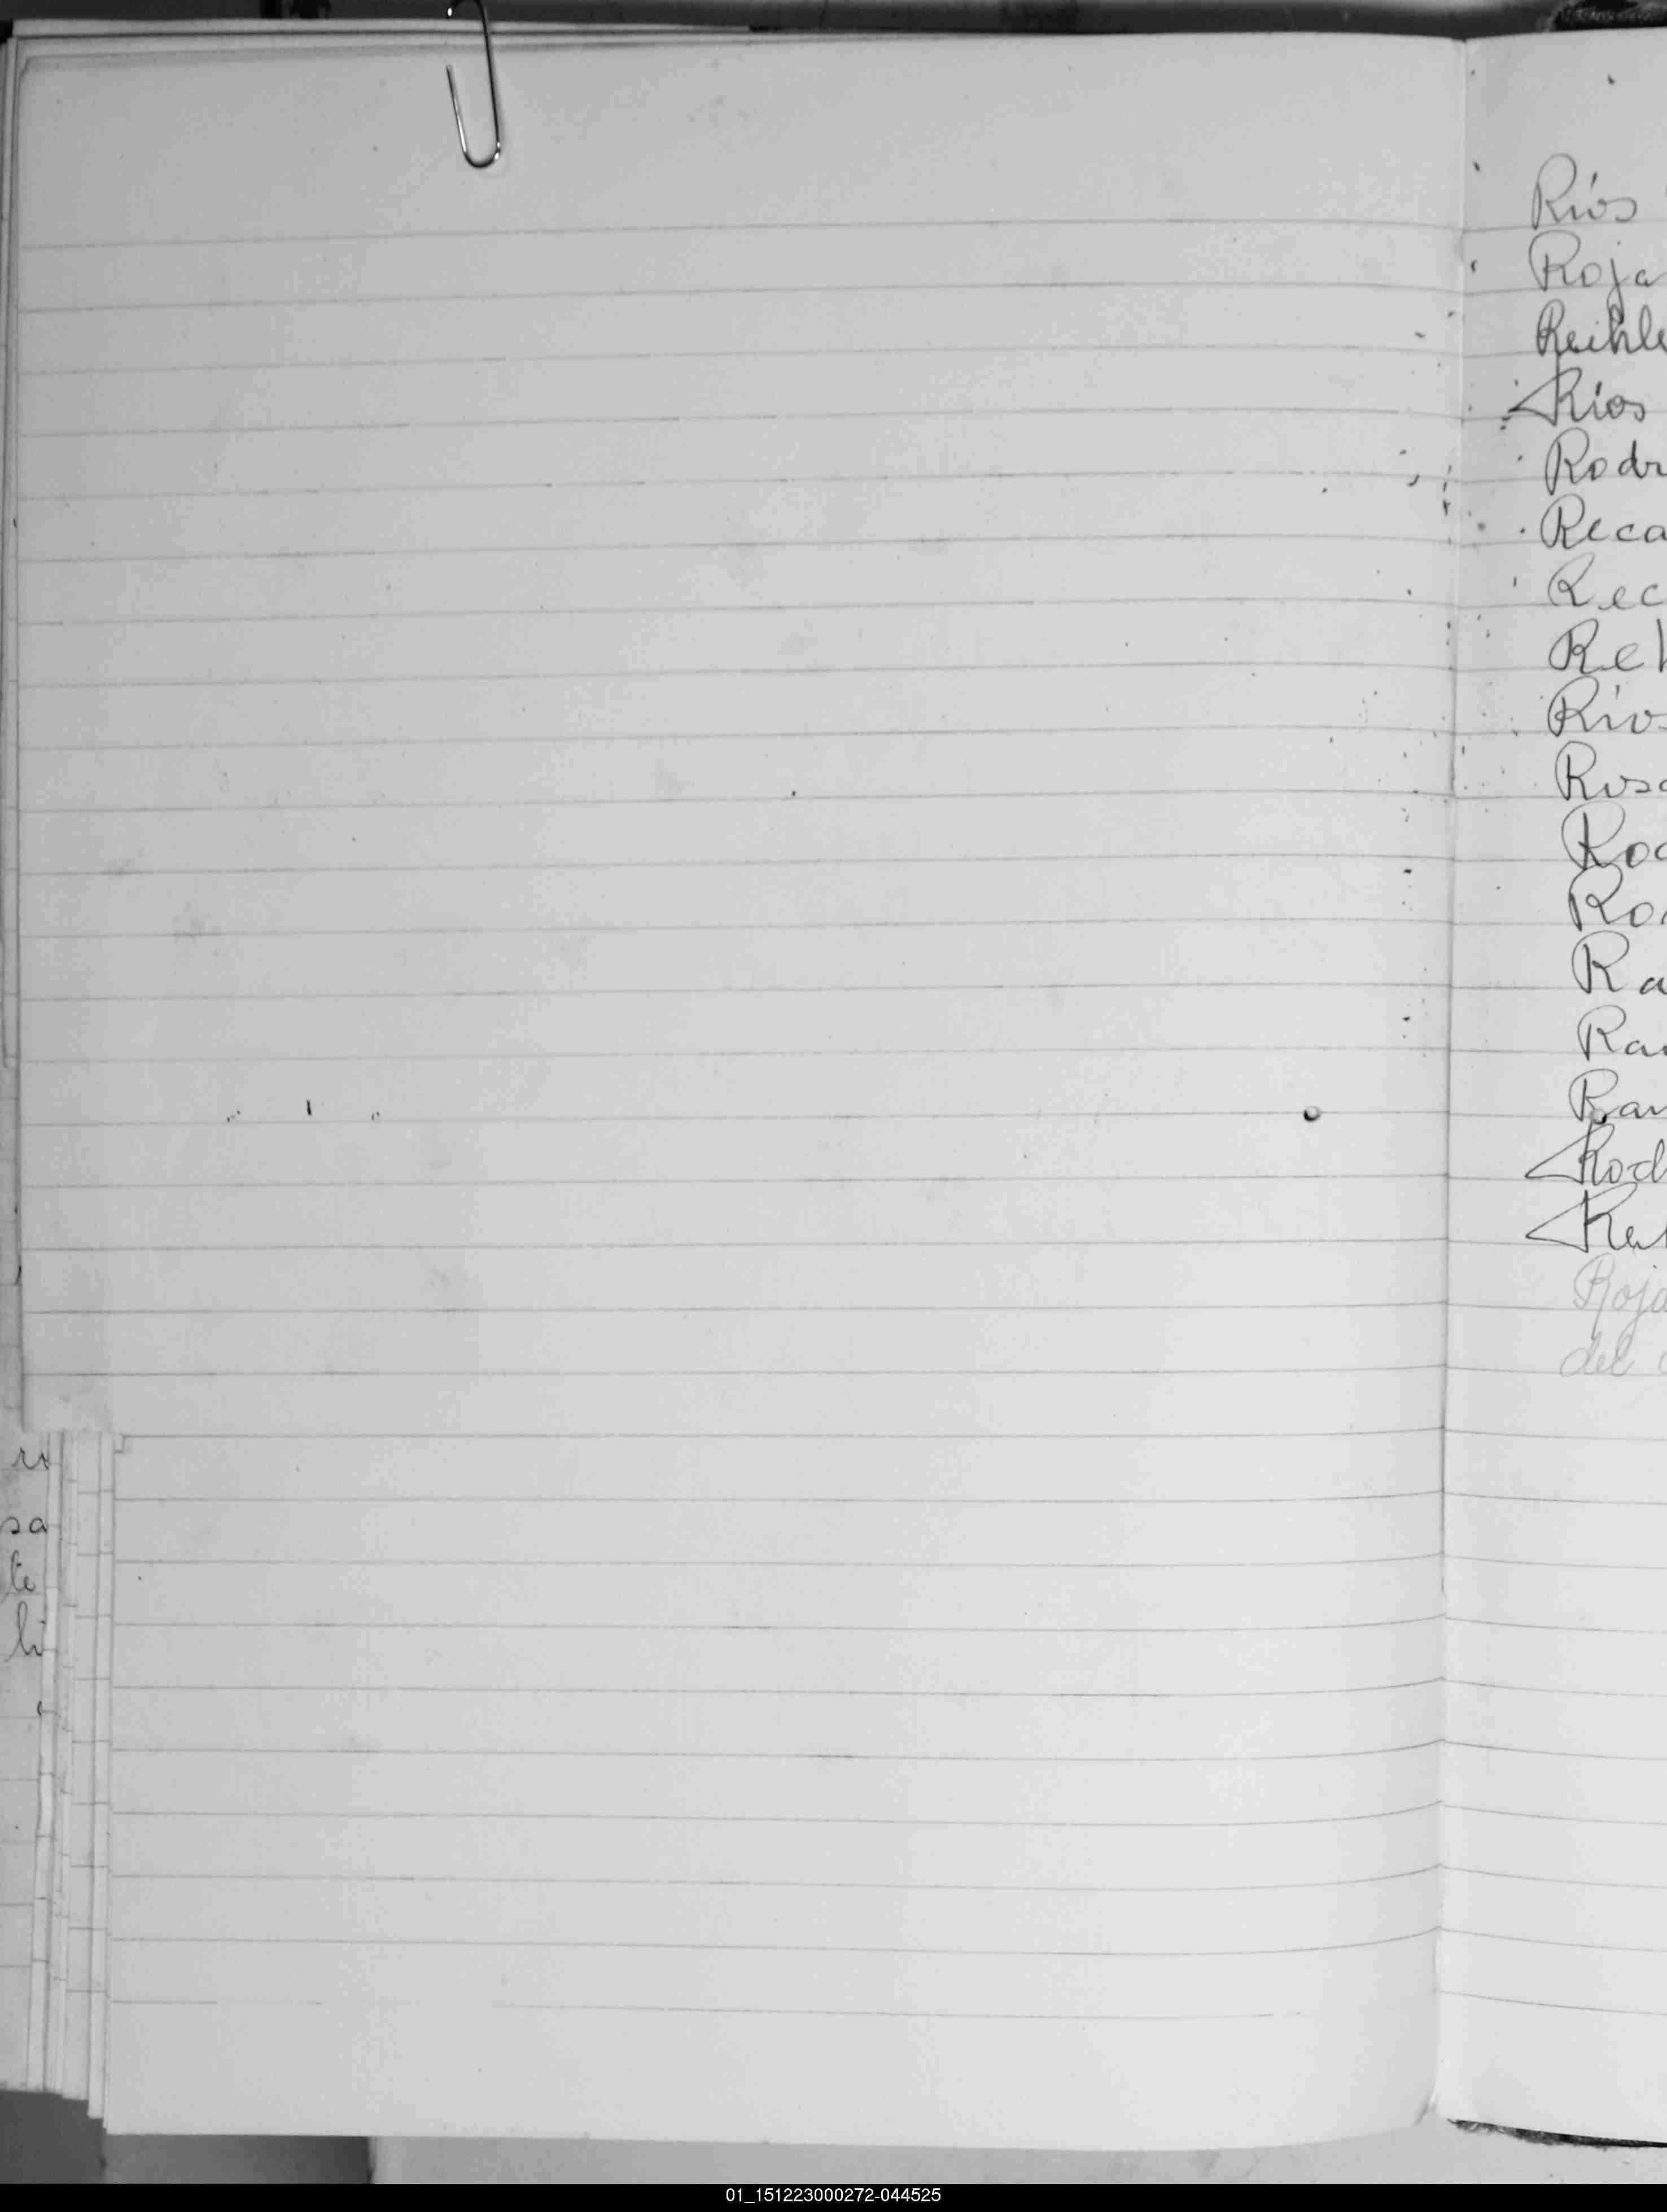 Ríos
Roja
Reihle
Ríos
Rodr
Reca
Rec
Reh
Ríos
Rosa
Rod
Ro
Ra
Ram
Ram
Rod
Roja
del
sa
te
li
01_151223000272-044525